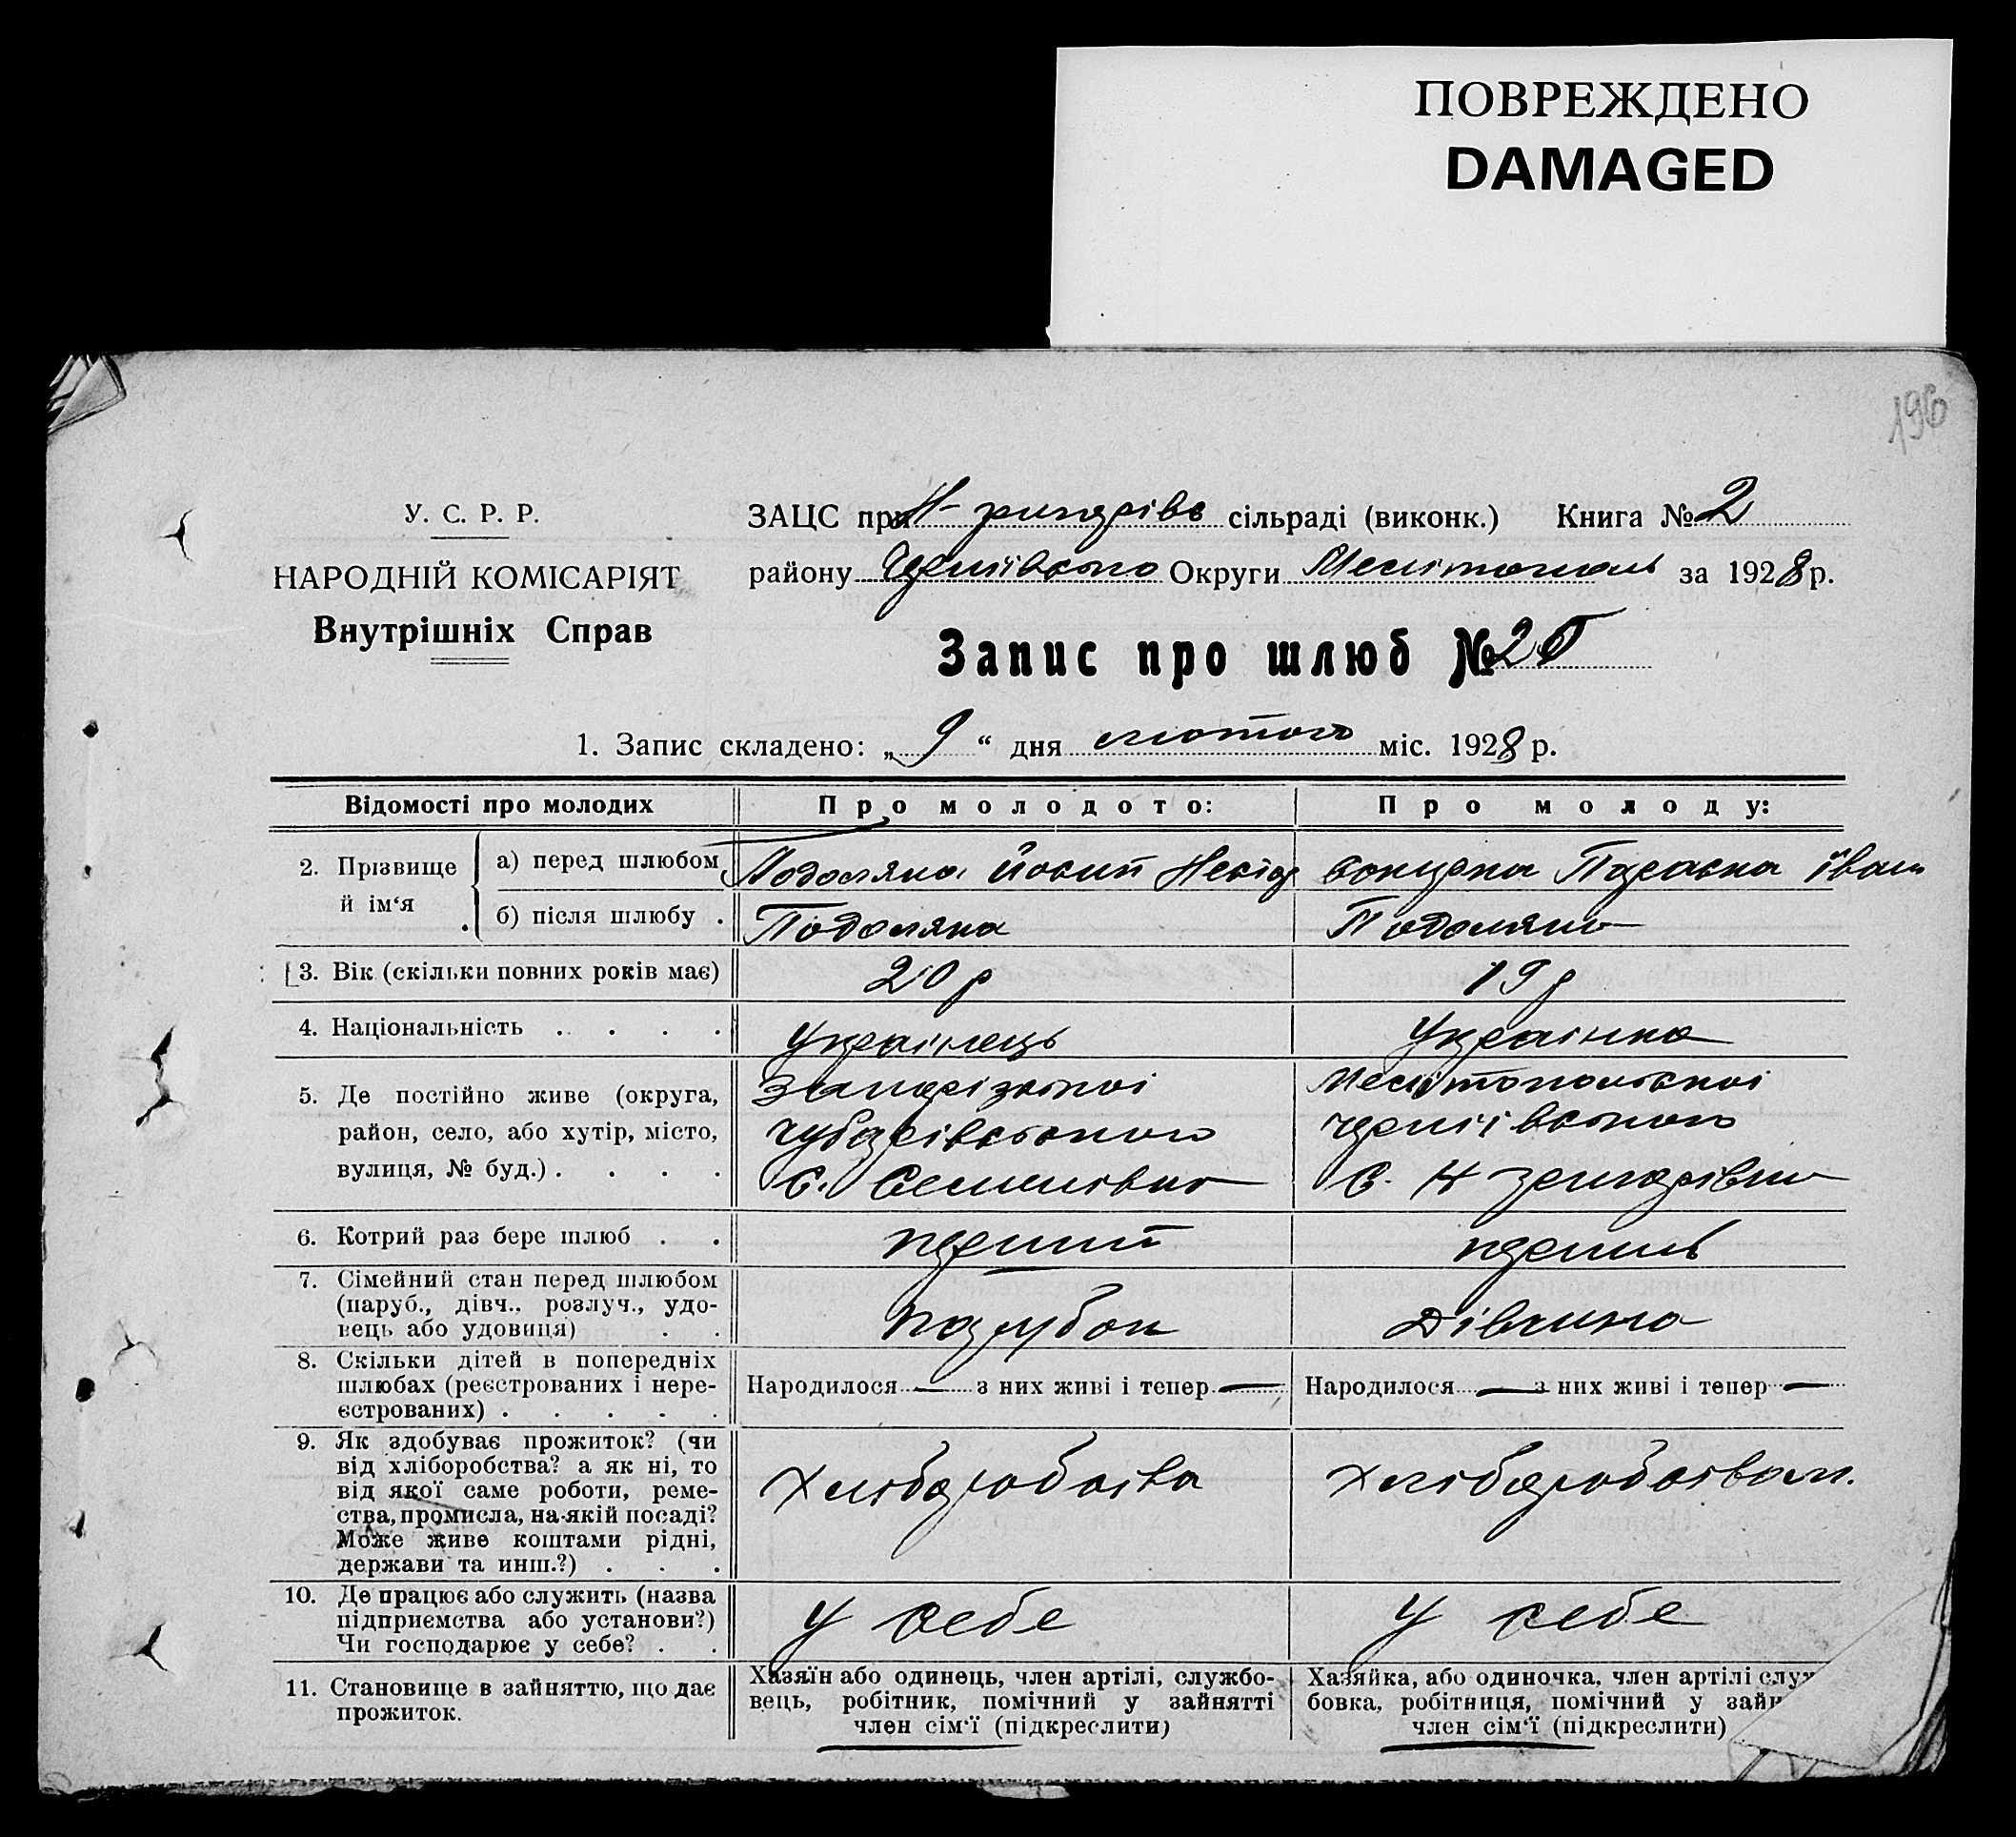 ПОВРЕЖДЕНО
DAMAGED
196
У. С. Р. Р.
НАРОДНІЙ КОМІСАРІЯТ
Внутрішніх Справ
ЗАЦС при Н- григорівс сільраді (виконк.) Книга № 2
району Чернігівського Округи Мелітополь за 1928 р.
Запис про шлюб №
1. Запис складено: „ 9 “ дня лютого міс. 1928 р.
Відомості про молодих
Про молодого:
Про молоду:
2. Прізвище й ім‘я
а) перед шлюбом
Подоляка Йосип
Параска Іван
б) після шлюбу .
Подоляка
Подоляка
3. Вік (скільки повних років має)
20 р
19 р
4. Національність . . . .
Українець
Українка
5. Де постійно живе (округа,
район, село, або хутір, місто,
вулиця, № буд.) . . . .
Запорізької
Чубарівського
С. Семенівка
Мелітопольскої
Чернігівського
С. Н григорівки
6. Котрий раз бере шлюб . .
перший
перший
7. Сімейний стан перед шлюбом
(паруб., дівч., розлуч., удо-
вець або удовиця) . .
парубок
Дівчина
8. Скільки дітей в попередніх
шлюбах (реєстрованих і нере-
єстрованих) . . . . .
Народилося — з них живі і тепер —
Народилося — з них живі і тепер —
9. Як здобуває прожиток? (чи
від хліборобства? а як ні, то
від якої саме роботи, реме-
ства, промисла, на-якій посаді?
Може живе коштами рідні,
держави та инш.?) . . .
Хліборобсва
Хліборобсвом.
10. Де працює або служить (назва
підприємства або установи?)
Чи господарює у себе? . .
У себе
У себе
11. Становище в зайняттю, що дає
прожиток.
Хазяїн або одинець, член артілі, службо-
вець, робітник, помічний у зайнятті
член сім‘ї (підкреслити)
Хазяйка, або одиночка, член артілі служ
бовка, робітниця, помічний у зайн
член сім‘ї (підкреслити)